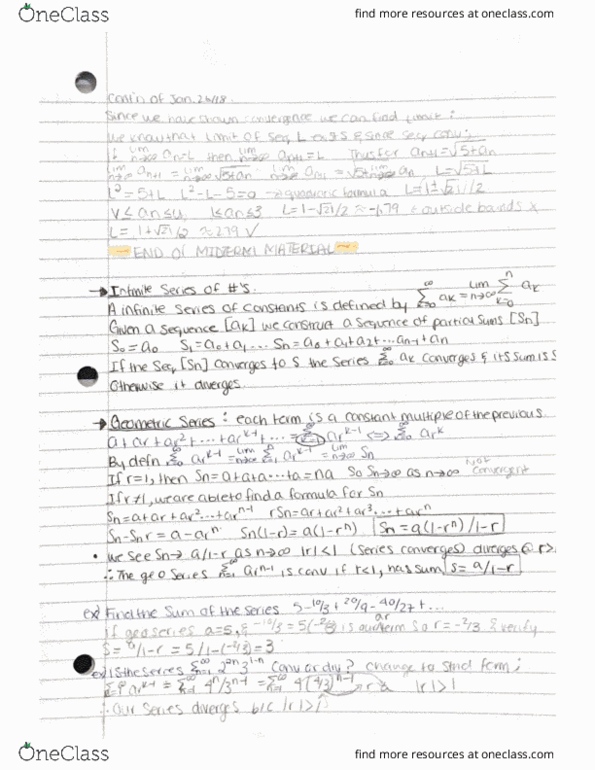 OneClass
find more resources at oneclass.com
Cont'n of Jan. 26/18
Since we have shown convergence we can find limit :
we know that limit of seq L exists since seq conv;
if lim n→∞ an=L then lim n→∞ an+1=L Thus for an+1=√5+an
lim n→∞ an+1 = lim n→∞ √5+an lim n→∞ an+1 = √5+lim n→∞ an, L=√5+L
L²=5+L L²-L-5=0 → quadratic formula L=1±√21/2
V≤an≤u, 1≤an≤3 L=1-√21/2≈-1.79 outside bands x
L=1+√21/2≈2.79 ✓
- END OF MIDTERM MATERIAL -
→ Infinite Series of #'s.
A infinite series of constants is defined by ∞Σk=0 ak = lim n→∞ nΣk=0 ak
Given a sequence [ak] we construct a sequence of partial sums [Sn]
S0=a0 S1=a0+a1 ... Sn=a0+a1+a2+...an-1+an
If the Seq [Sn] converges to S the series ∞Σ0 ak converges & its sum is S
Otherwise it diverges.
→ Geometric Series : each term is a constant multiple of the previous.
a+ar+ar²+...+ar^k-1+... = ∞Σk=1 ar^k-1 <=> ∞Σ0 ar^k
By defn ∞Σ0 ar^k-1 = lim n→∞ nΣ1 ar^k-1 = lim n→∞ Sn
If r=1, then Sn=a+a+a...+a=na So Sn→∞ as n→∞ Not convergent
If r≠1, we are able to find a formula for Sn
Sn=a+ar+ar²...+ar^n-1 rSn=ar+ar²+ar³...+ar^n
Sn-Snr=a-ar^n Sn(1-r)=a(1-r^n) Sn=a(1-r^n)/1-r
• we see Sn→a/1-r as n→∞ |r|<1 (series converges) diverges @ r>
∴ The geo series ∞Σn=1 ar^n-1 is conv if r<1, has sum S=a/1-r
ex) Find the sum of the series 5-10/3+20/9-40/27+...
If geo series a=5, & -10/3=5(-2/3) is our ar term so r=-2/3 & verify
S=a/1-r=5/1-(-2/3)=3
ex) Is the series ∞Σn=1 2^2n 3^1-n conv or div? change to strd form ;
∞Σ1 ar^k-1 = ∞Σn=1 4^n/3^n-1 = ∞Σn=1 4(4/3)^n-1 → r |r|>1
∴ Our series diverges b/c |r|>1
OneClass
find more resources at oneclass.com